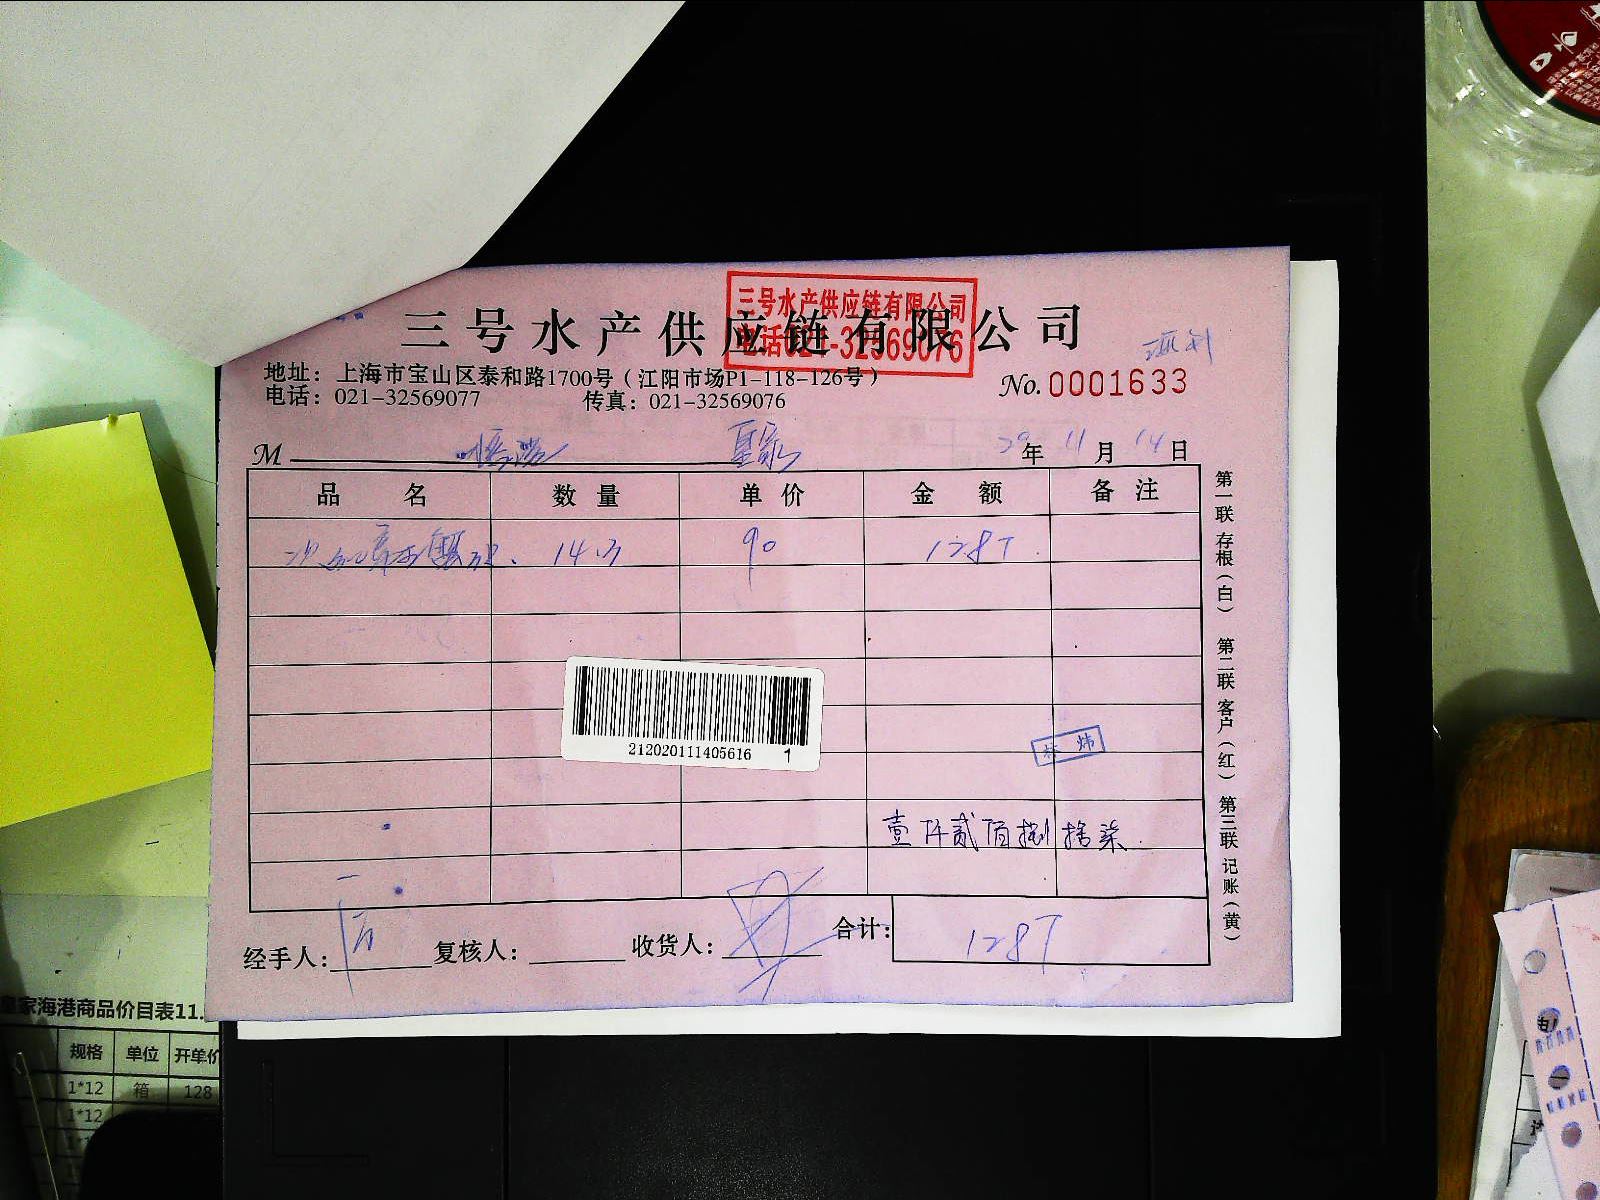 三号水产供应链有限公司
电话021-32569076
三号水产供应链有限公司
地址：上海市宝山区泰和路1700号（江阳市场P1-118-126号）
No. 0001633
电话：021-32569077 传真：021-32569076
M 皇家 年 11 月 14 日
品名 数量 单价 金额 备注
90 1287
212020111405616 1
林炜
壹仟贰佰捌拾柒
经手人： 复核人： 收货人： 合计： 1287
第一联 存根（白） 第二联 客户（红） 第三联 记账（黄）
皇家海港商品价目表11.
规格 单位 开单价
1*12 箱 128
1*12